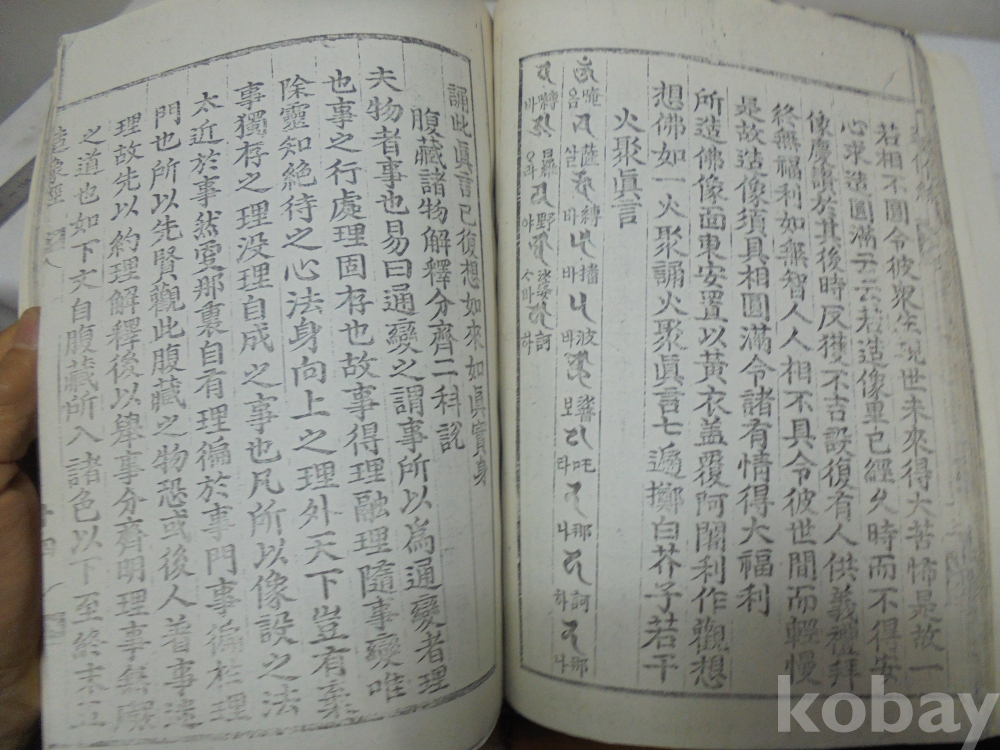 若相不圓令彼衆生現世未來得大苦怖是故一
心求造圓滿云云若造像畢已經久時而不得安
像慶讚於其後時反獲不吉設復有人供義禮拜
終無福利如無智人人相不具令彼世間而輕慢
是故造像須具相圓滿令諸有情得大福利
所造佛像面東安置以黃衣盖覆阿闍利作觀想
想佛如一火聚誦火聚眞言七遍擲白芥子若干
火聚眞言
唵薩嚩播波普吒那訶那
옴살바바바보타나하나
嚩日羅野娑訶
바ᅀᅡ라야ᄉᆞ바하
誦此眞言已復想如來如眞實身
腹藏諸物解釋分齊二科說
夫物者事也易曰通變之謂事所以爲通變者理
也事之行處理固存也故事得理融理隨事變唯
除靈知絶待之心法身向上之理外天下豈有棄
事獨存之理没理自成之事也凡所以像設之法
太近於事然爱那裏自有理徧於事門事徧於理
門也所以先賢觀此腹藏之物恐或後人着事迷
理故先以約理解釋後以舉事分齊明理事無礙
之道也如下文自腹藏所入諸色以下至終末五
造像經
kobay